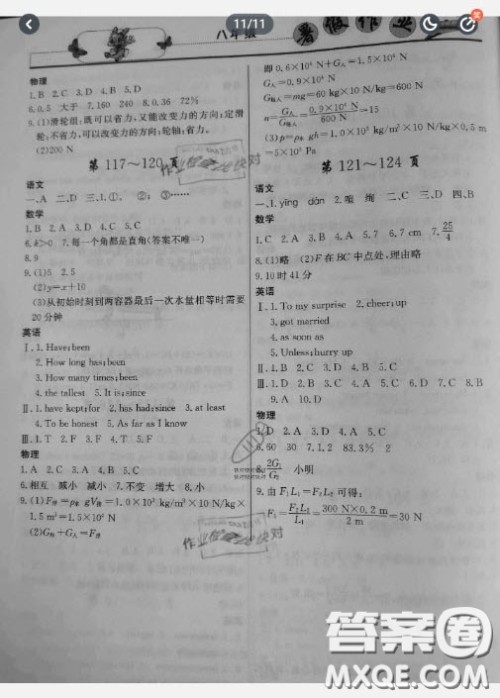 11/11
八年级
暑假作业
物理
1.B 2.C 3.D 4.B 5.D
6.0.5 大于 7.160 240 8.0.36 72%
9.(1)滑轮组:既可以省力,又能改变力的方向;定滑
轮:不省力,可以改变力的方向;轮轴:省力.
(2)200 N
第 117～120 页
语文
一、A 二、D 三、1.①, ②; ③……
数学
1.B 2.C 3.D 4.A 5.C
6.k>0 7.每一个角都是直角(答案不唯一)
8.9
9.(1)5 2.5
(2)y=x+10
(3)从初始时刻到两容器最后一次水量相等时需要
20分钟
英语
Ⅰ.1.Have;been
2.How long has;been
3.How many times;been
4.the tallest 5.It is;since
Ⅱ.1.have kept;for 2.has had;since 3.at least
4.To be honest 5.As far as I know
Ⅲ.1.T 2.F 3.F 4.T 5.F
物理
1.A 2.C 3.D 4.A 5.C
6.相互 减小 减小 7.不变 增大 8.小
9.(1)F浮=ρ水 gV排=1.0×10³ kg/m³×10 N/kg×
1.5 m³=1.5×10⁴ N
(2)G物+G人=F浮
即 0.6×10⁴ N+G人=1.5×10⁴ N
G人=0.9×10⁴ N
G每人=mg=60 kg×10 N/kg=600 N
n=G人/G每人=0.9×10⁴ N/600 N=15
(3)p=ρ水 gh=1.0×10³ kg/m³×10 N/kg×0.5 m
=5×10³ Pa
第 121～124 页
语文
一、1.yīng dàn 2.咀 绚 二、C 三、D 四、B
数学
1.C 2.A 3.B 4.A 5.7 6.7 cm 7.25/4
8.(1)略 (2)F在BC中点处,理由略
9.10时41分
英语
Ⅰ.1.To my surprise 2.cheer;up
3.got married
4.as soon as
5.Unless;hurry up
Ⅲ.1.D 2.B 3.C 4.B 5.C 6.D 7.A 8.C
9.A 10.D
物理
1.D 2.A 3.A 4.B 5.C
6.60 30 7.1.2 83.3% 2
8.2G₁/G₂ 小明
9.由F₁L₁=F₂L₂可得:
F₁=F₂L₂/L₁=300 N×0.2 m/2 m=30 N
答案圈
MXQE.COM